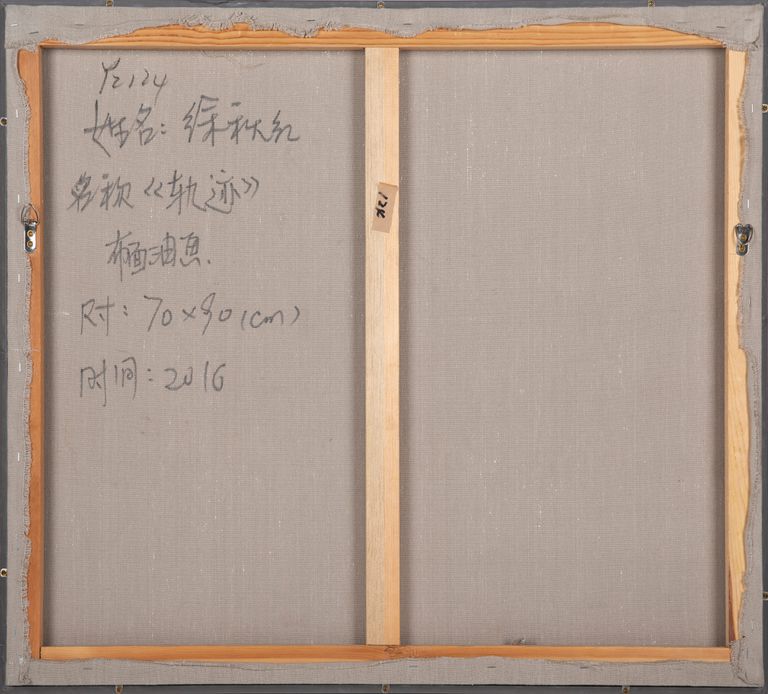 YZ124
姓名:徐秋红
名称《轨迹》
布面油画.
尺寸:70×90(cm)
时间:2016